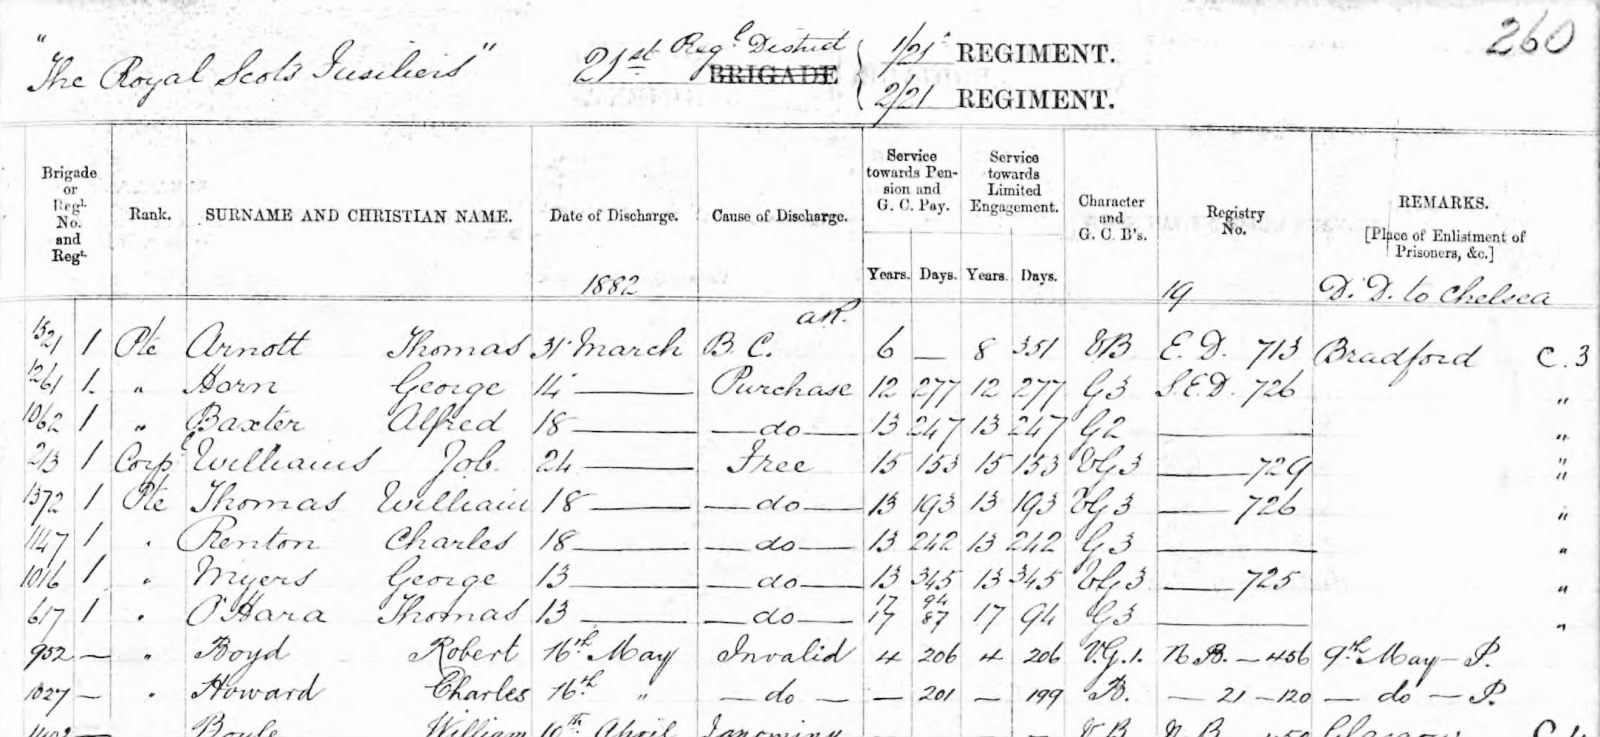 260
"The Royal Scots Fusiliers" 21st Regl District BRIGADE 1/21 REGIMENT.
2/21 REGIMENT.
Brigade or Regl. No. and Regt. Rank. SURNAME AND CHRISTIAN NAME. Date of Discharge. Cause of Discharge. Service towards Pension and G. C. Pay. Service towards Limited Engagement. Character and G. C. B's. Registry No. REMARKS. [Place of Enlistment of Prisoners, &c.]
Years. Days. Years. Days.
1882 19 D.D. to Chelsea
1521 1 Pte Arnott Thomas 31 March B.C. 6 — 8 351 VB E.D. 713 Bradford C.3
1261 1 " Horn George 14 — Purchase 12 277 12 277 G3 S.E.D. 726 "
1062 1 " Baxter Alfred 18 — do — 13 247 13 247 G2 — "
213 1 Corpl Williams Job. 24 — Free 15 153 15 153 VG3 — 729 "
1372 1 Pte Thomas William 18 — do — 13 193 13 193 VG3 — 726 "
1147 1 . Renton Charles 18 — do — 13 242 13 242 G3 — "
1016 1 . Myers George 13 — do — 13 345 13 345 VG3 — 725 "
17 94
617 1 . O'Hara Thomas 13 — do — 17 87 17 94 G3 — "
952 — . Boyd Robert 16th May Invalid 4 206 4 206 V.G.1. N.B. — 456 9th May — P.
1027 — . Howard Charles 16th " — do — — 201 — 199 B. — 21 — 120 — do — P.
Boyle William 10th April Ignominy — — — — V.B. N.B. 450 Glasgow C.4